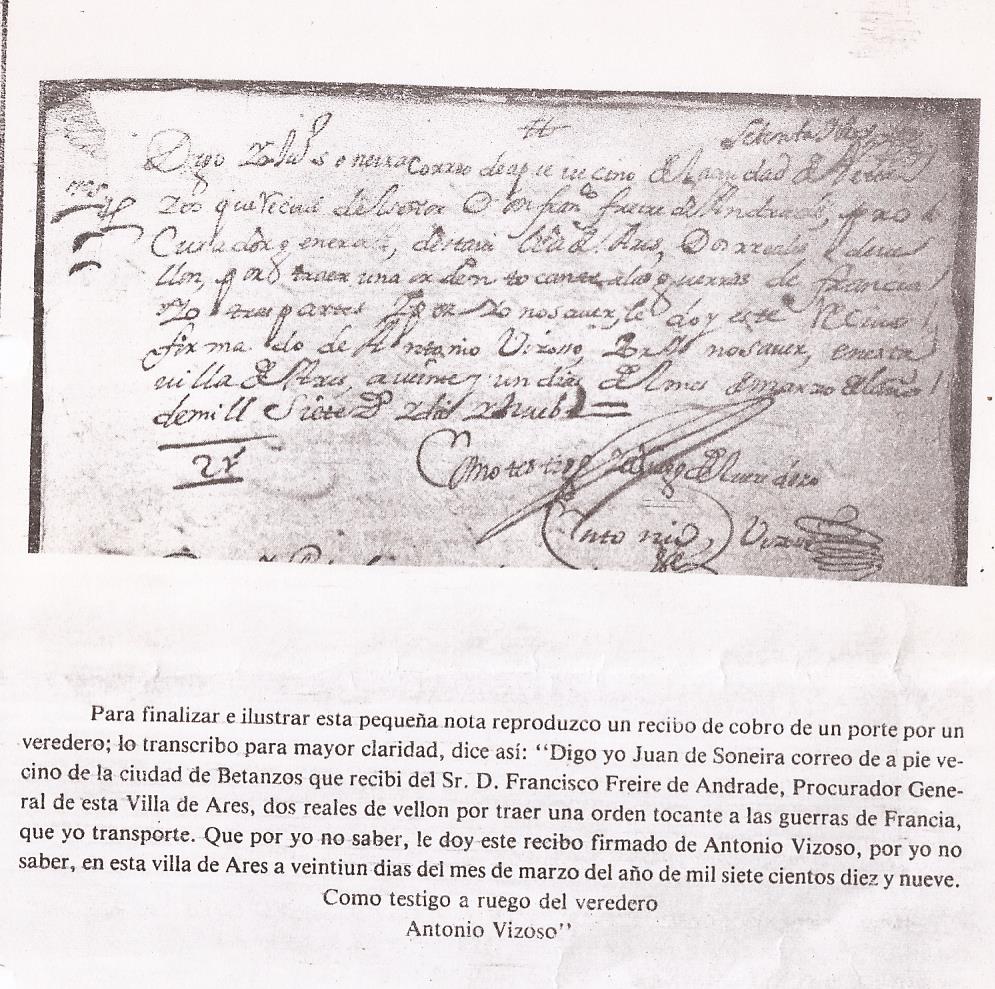 Setenta
Digo Yo Ju° Soneira Correo de a pie vecino de la ciudad de
que Recivi del señor D. Dn fran.co freire de Andrade, pro
Curador general, de esta villa de Ares, Dos reales de ve
llon, por traer una orden tocante a las guerras de francia
Yo trasparte Y por Yo no saver, le doy este Recivo
firmado de Antonio Vizoso, Por Yo no saver, en esta
villa de Ares, a veinte y un dias del mes de marzo del año
de mill Siete
2 rs
Como testigo Y a ruego del veredero
Antonio Vizoso
Para finalizar e ilustrar esta pequeña nota reproduzco un recibo de cobro de un porte por un
veredero; lo transcribo para mayor claridad, dice así: “Digo yo Juan de Soneira correo de a pie ve-
cino de la ciudad de Betanzos que recibi del Sr. D. Francisco Freire de Andrade, Procurador Gene-
ral de esta Villa de Ares, dos reales de vellon por traer una orden tocante a las guerras de Francia,
que yo transporte. Que por yo no saber, le doy este recibo firmado de Antonio Vizoso, por yo no
saber, en esta villa de Ares a veintiun dias del mes de marzo del año de mil siete cientos diez y nueve.
Como testigo a ruego del veredero
Antonio Vizoso”